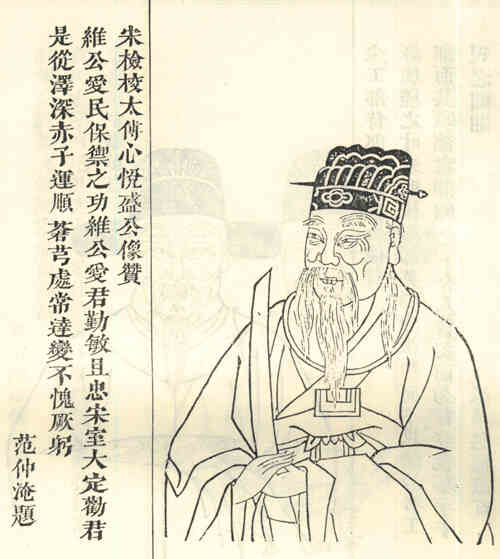 宋檢校太傅心悅盛公像贊
維公愛民保禦之功維公愛君勤敏且忠宋室大定勸君
是從澤深赤子運順蒼芎處常達變不愧厥躬
范仲淹題